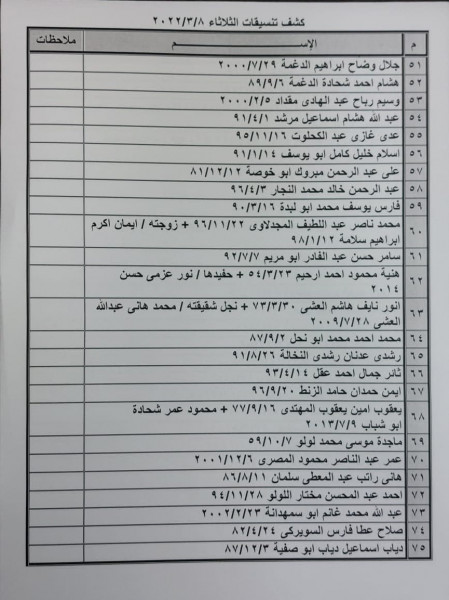 كشف تنسيقات الثلاثاء ٢٠٢٢/٣/٨
م الإســـــم ملاحظات
٥١ جلال وضاح ابراهيم الدغمة ٢٠٠٠/٧/٢٩
٥٢ هشام احمد شحادة الدغمة ٨٩/٩/٦
٥٣ وسيم رباح عبد الهادى مقداد ٢٠٠٠/٢/٥
٥٤ عبد الله هشام اسماعيل مرشد ٩١/٤/١
٥٥ عدى غازى عبد الكحلوت ٩٥/١١/١٦
٥٦ اسلام خليل كامل ابو يوسف ٩١/١/١٤
٥٧ على عبد الرحمن مبروك ابو خوصة ٨١/١٢/١٢
٥٨ عبد الرحمن خالد محمد النجار ٩٦/٤/٣
٥٩ فارس يوسف محمد ابو لبدة ٩٠/٣/١٦
٦٠ محمد ناصر عبد اللطيف المجدلاوى ٩٦/١١/٢٢ + زوجته / ايمان اكرم
ابراهيم سلامة ٩٨/١/١٢
٦١ سامر حسن عبد القادر ابو مريم ٩٢/٧/٧
٦٢ هنية محمود احمد ارحيم ٥٤/٣/٢٣ + حفيدها / نور عزمى حسن
٢٠١٤
٦٣ انور نايف هاشم العشى ٧٣/٣/٣٠ + نجل شقيقته / محمد هانى عبدالله
العشى ٢٠٠٩/٧/٢٨
٦٤ محمد احمد محمد ابو نحل ٨٧/٩/٢
٦٥ رشدى عدنان رشدى النخالة ٩١/٨/٢٦
٦٦ ثائر جمال احمد عقل ٩٣/٤/١٤
٦٧ ايمن حمدان حامد الزنط ٩٦/٩/٢٠
٦٨ يعقوب امين يعقوب المهتدى ٧٧/٩/١٦ + محمود عمر شحادة
ابو شباب ٢٠١٣/٧/٩
٦٩ ماجدة موسى محمد لولو ٥٩/١٠/٧
٧٠ عمر عبد الناصر محمود المصرى ٢٠٠١/١٢/٦
٧١ هانى راتب عبد المعطى سلمان ٨٦/٨/١١
٧٢ احمد عبد المحسن مختار اللولو ٩٤/١١/٢٨
٧٣ عبد الله محمد غانم ابو سمهدانة ٢٠٠٢/٢/٢٣
٧٤ صلاح عطا فارس السويركى ٨٢/٤/٢٤
٧٥ دياب اسماعيل دياب ابو صفية ٨٧/١٢/٣